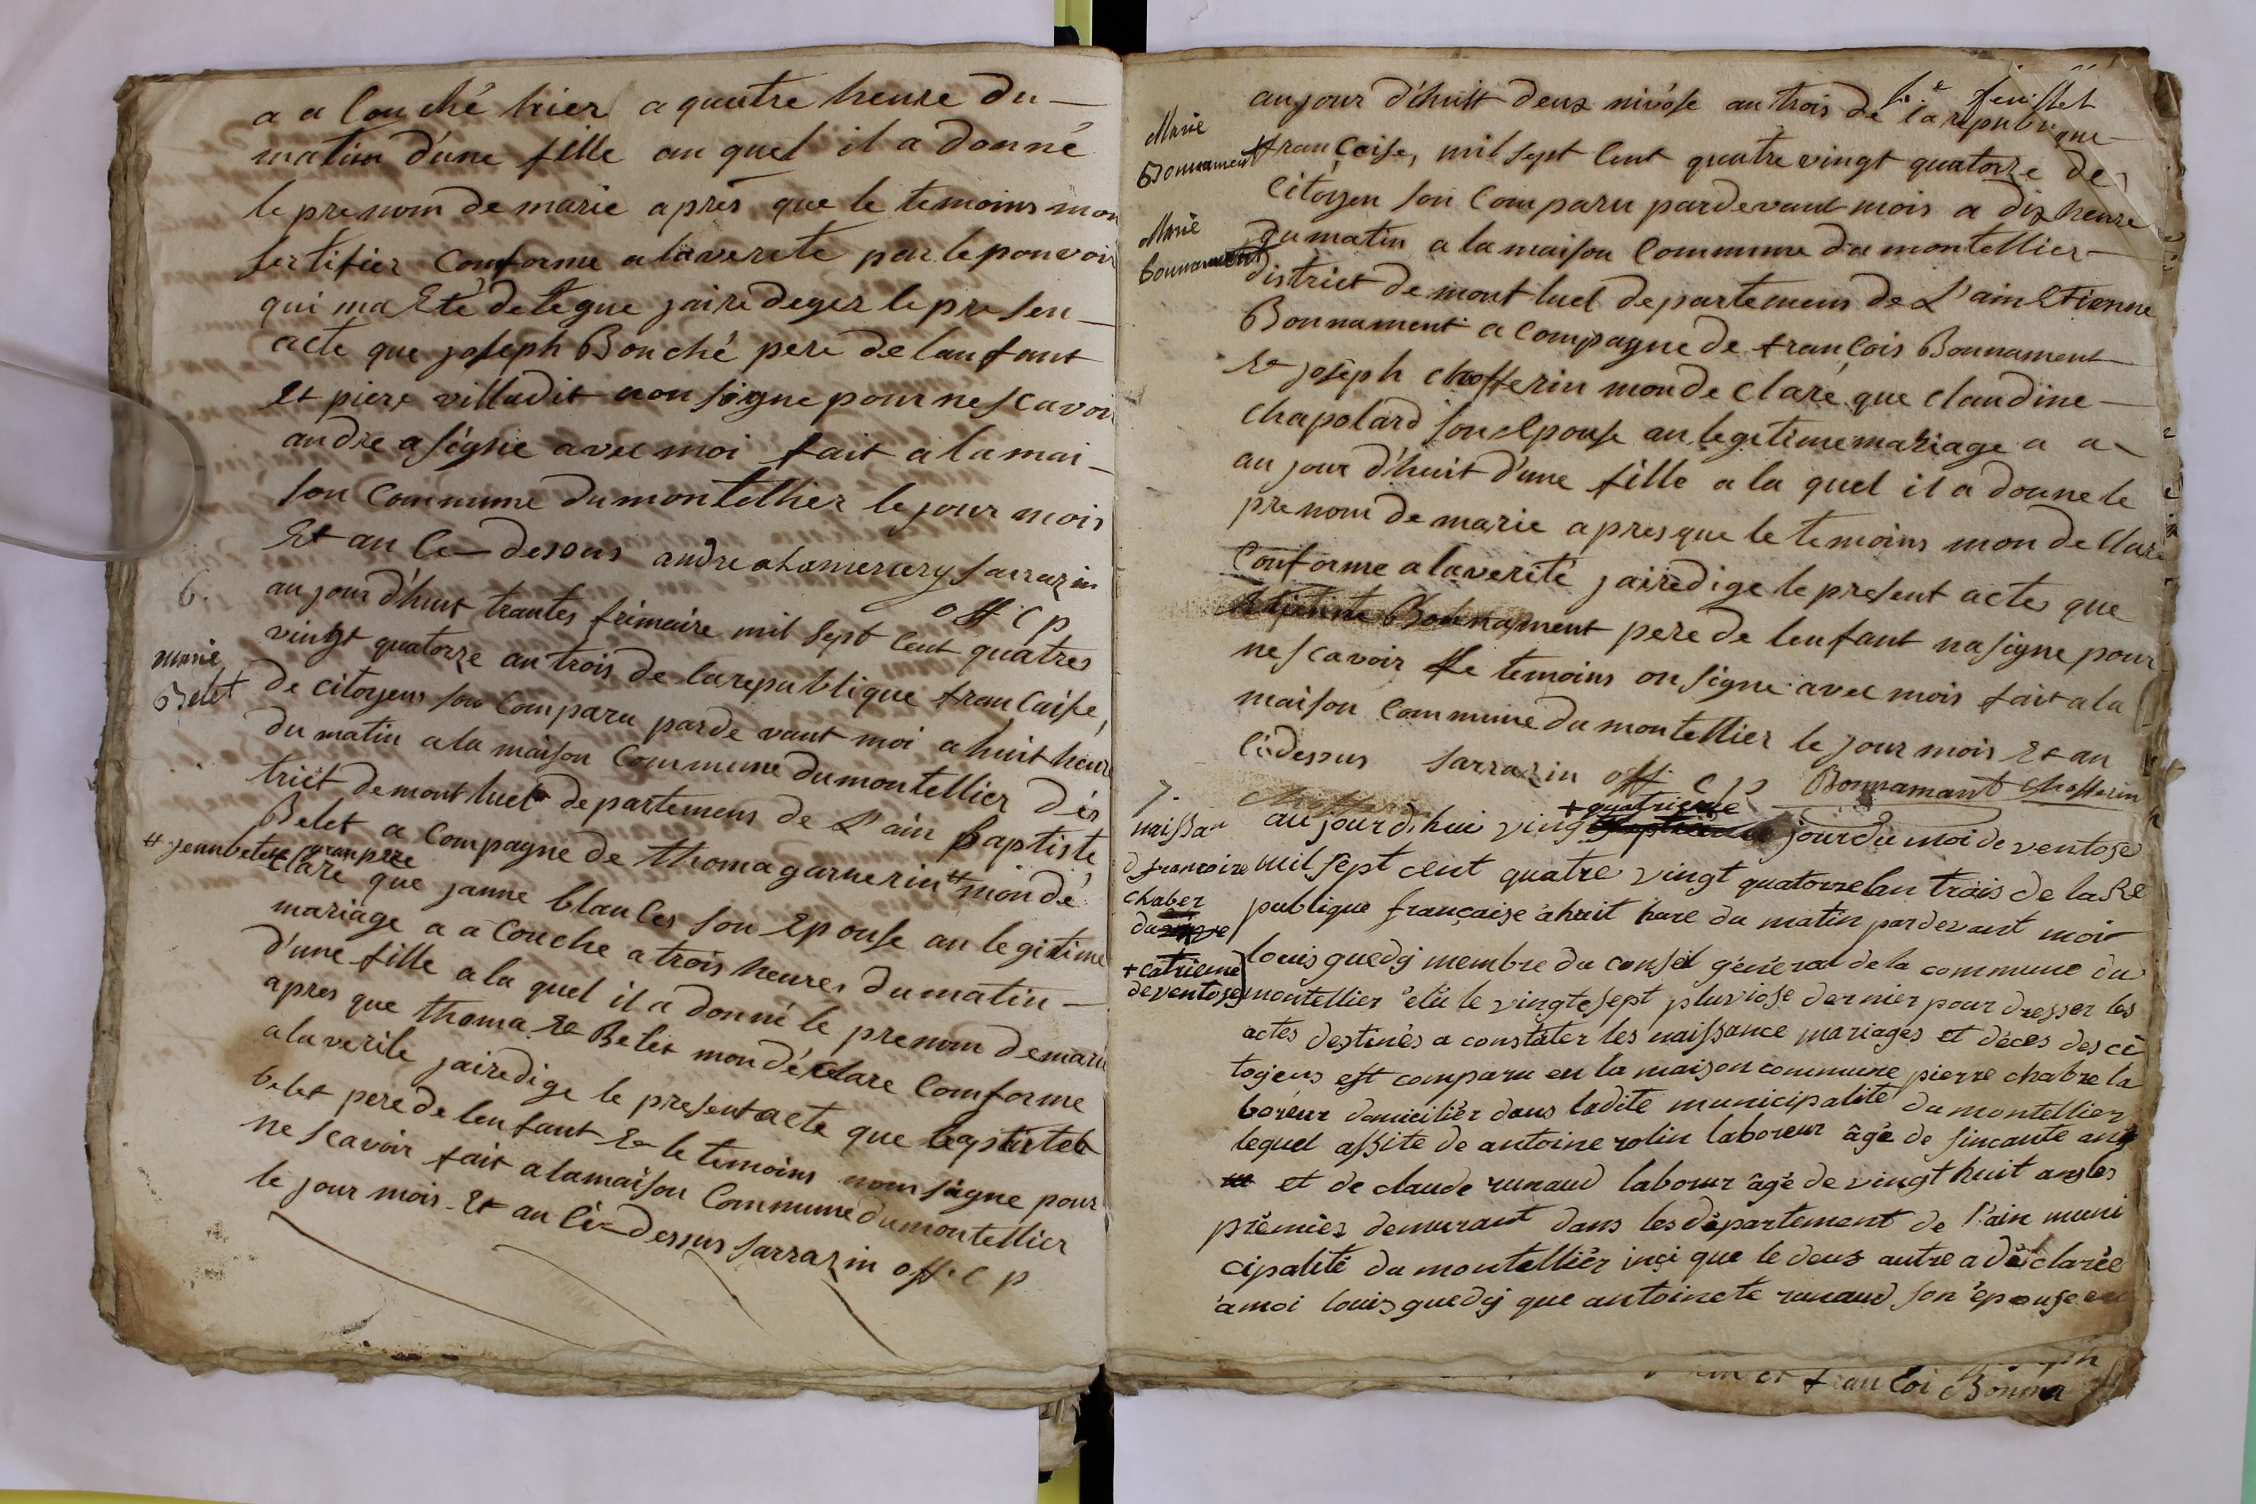 a a Couché hier a quatre heure du
matin d'une fille au quel il a donné
le prenom de marie après que le temoins mon
sertifier Conforme a la verete par le pouvoir
qui ma Eté delegue jairedeger le presen
acte que joseph Bouché pere de lanfant
Et piere villadit non signe pour ne scavoir
andre a signe avec moi fait a la mai
son Commune du montellier le jour mois
Et an Ci-desous andre sarrazin
off C p
6.
au jour d'huit trantes frimaire mil sept Cent quatres
vingt quatorze an trois de la republique francaise,
marie
Belet
de citoyens son Comparu par de vant moi a huit heure
du matin a la maison Commune du montellier dis
trict de mont luel departemens de L'ain Baptiste
Belet a Compagne de thoma garnerin # mon dé
# jean belet gran pere
clare que janne blances son Epouse an legitime
mariage a a Couche a trois heures du matin
d'une fille a la quel il a donné le prenom de marie
apres que thoma Et Belet mon déclare Comforme
a la verite jairedige le present acte que
belet pere de lenfant Et le temoins non signe pour
ne scavoir fait a la maison Commune du montellier
le jour mois Et an Ci-dessus sarrazin off. C p
feuillet
Marie
Bonnament
Marie
bonnament
au jour d'huit deux nivôse an trois de la republique
francoise, mil sept Cent quatre vingt quatorze de
Citoyen son Comparu pardevant mois a dix heure
du matin a la maison Commune du montellier
district de mont luel departemens de L'ain Etienne
Bonnament a Compagne de francois Bonnament
Et joseph chofferin mon de claré que claudine
chapolard son epouse an legitime mariage a a
au jour d'huit d'une fille a la quel il a donne le
prenom de marie apres que le temoins mon de clare
Conforme a la verité jairedige le present actes que
Etienne Bonnament pere de lenfant na signe pour
ne scavoir le temoins on signe avec mois fait a la
maison Commune du montellier le jour mois Et an
Ci dessus sarrazin off C p Bonnamant chofferin
7.
naissan
d francoise
chaber
+ catrieme
de ventose
+ quatrieme
au jour d'hui vingt jour du moi de ventose
mil sept cent quatre vingt quatorze lan trois de la Re
publique française a huit hure du matin par devant moi
louis guedy membre du conseil général de la commune du
montellier élu le vingtesept pluviose dernier pour dresser les
actes destinés a constater les naissance mariages et décès des ci
toyens est comparu en la maison commune pierre chabre la
boreur domicilier dans ladite municipalité du montellier
lequel assité de antoine rolin laboreur âgé de sincante ans
et de claude runaud laborur âgé de vingt huit ans les
prêmiez demurant dans les département de l'ain muni
cipalité du montelliér inçi que le deux autre a déclarée
à moi louis guedy que antoinete runaud son épouse en
francoi Bonna